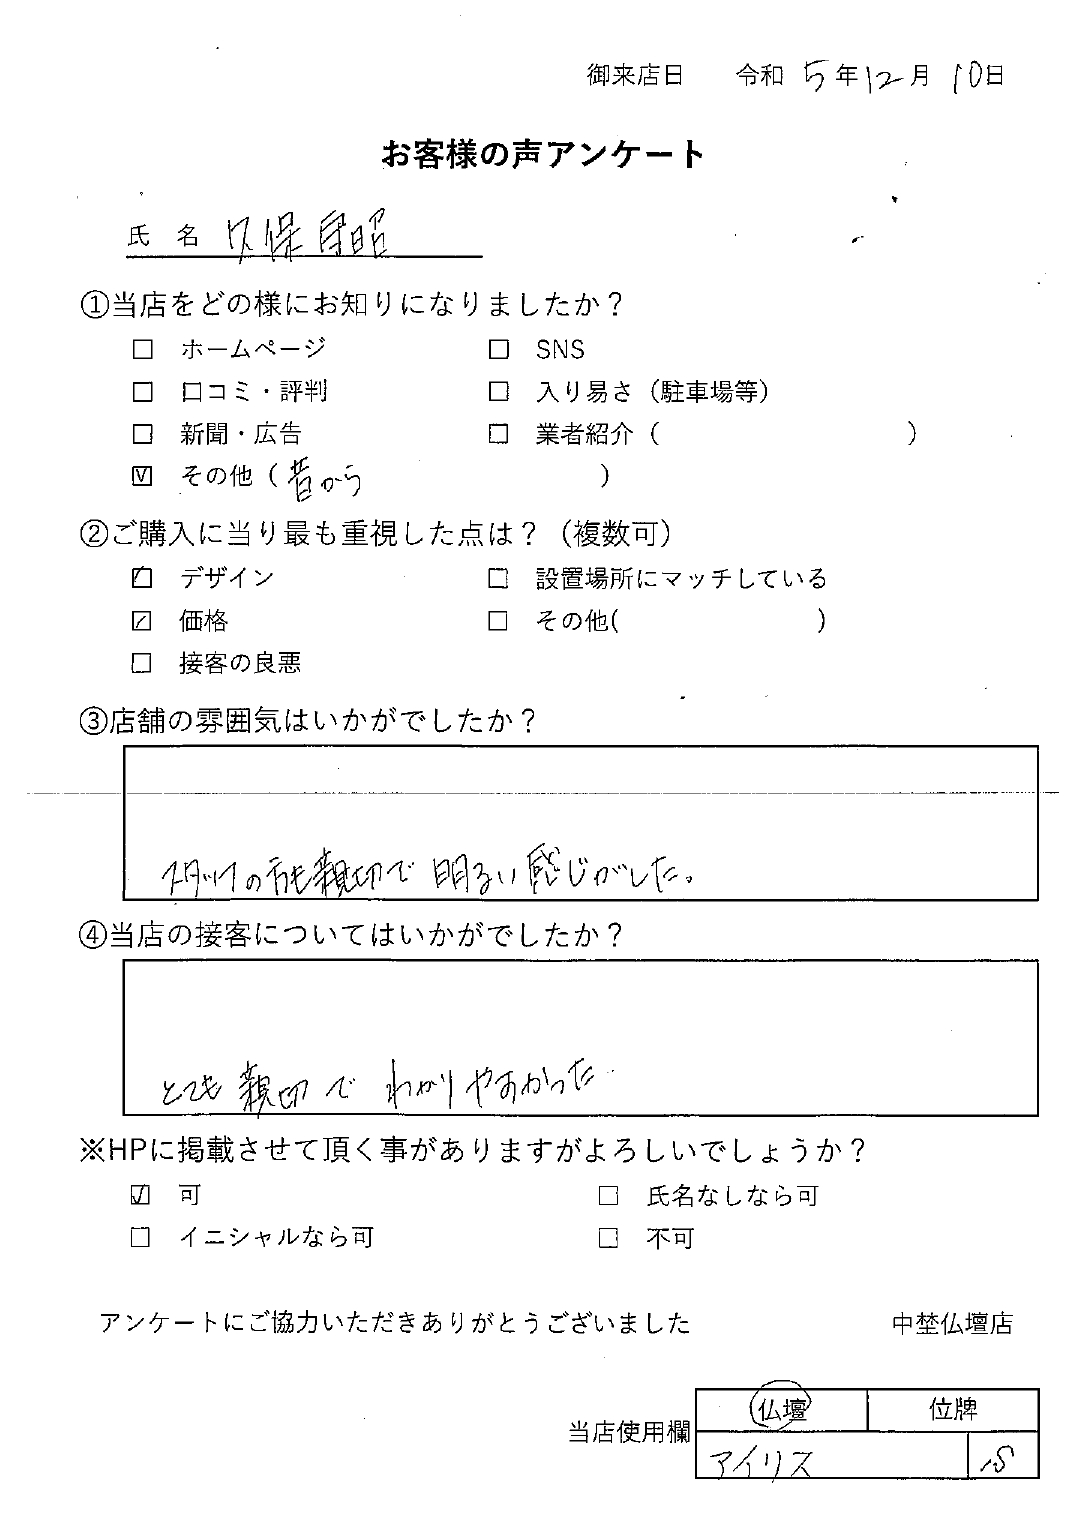 御来店日 令和 5年12月 10日
お客様の声アンケート
氏 名 久保 昭
①当店をどの様にお知りになりましたか？
□ ホームページ □ SNS
□ 口コミ・評判 □ 入り易さ（駐車場等）
□ 新聞・広告 □ 業者紹介（ ）
☑ その他（昔から ）
②ご購入に当り最も重視した点は？（複数可）
☑ デザイン □ 設置場所にマッチしている
☑ 価格 □ その他( )
□ 接客の良悪
③店舗の雰囲気はいかがでしたか？
スタッフの方も親切で 明るい感じがした。
④当店の接客についてはいかがでしたか？
とても親切で わかりやすかった
※HPに掲載させて頂く事がありますがよろしいでしょうか？
☑ 可 □ 氏名なしなら可
□ イニシャルなら可 □ 不可
アンケートにご協力いただきありがとうございました 中埜仏壇店
仏壇 位牌
当店使用欄
アイリス 18